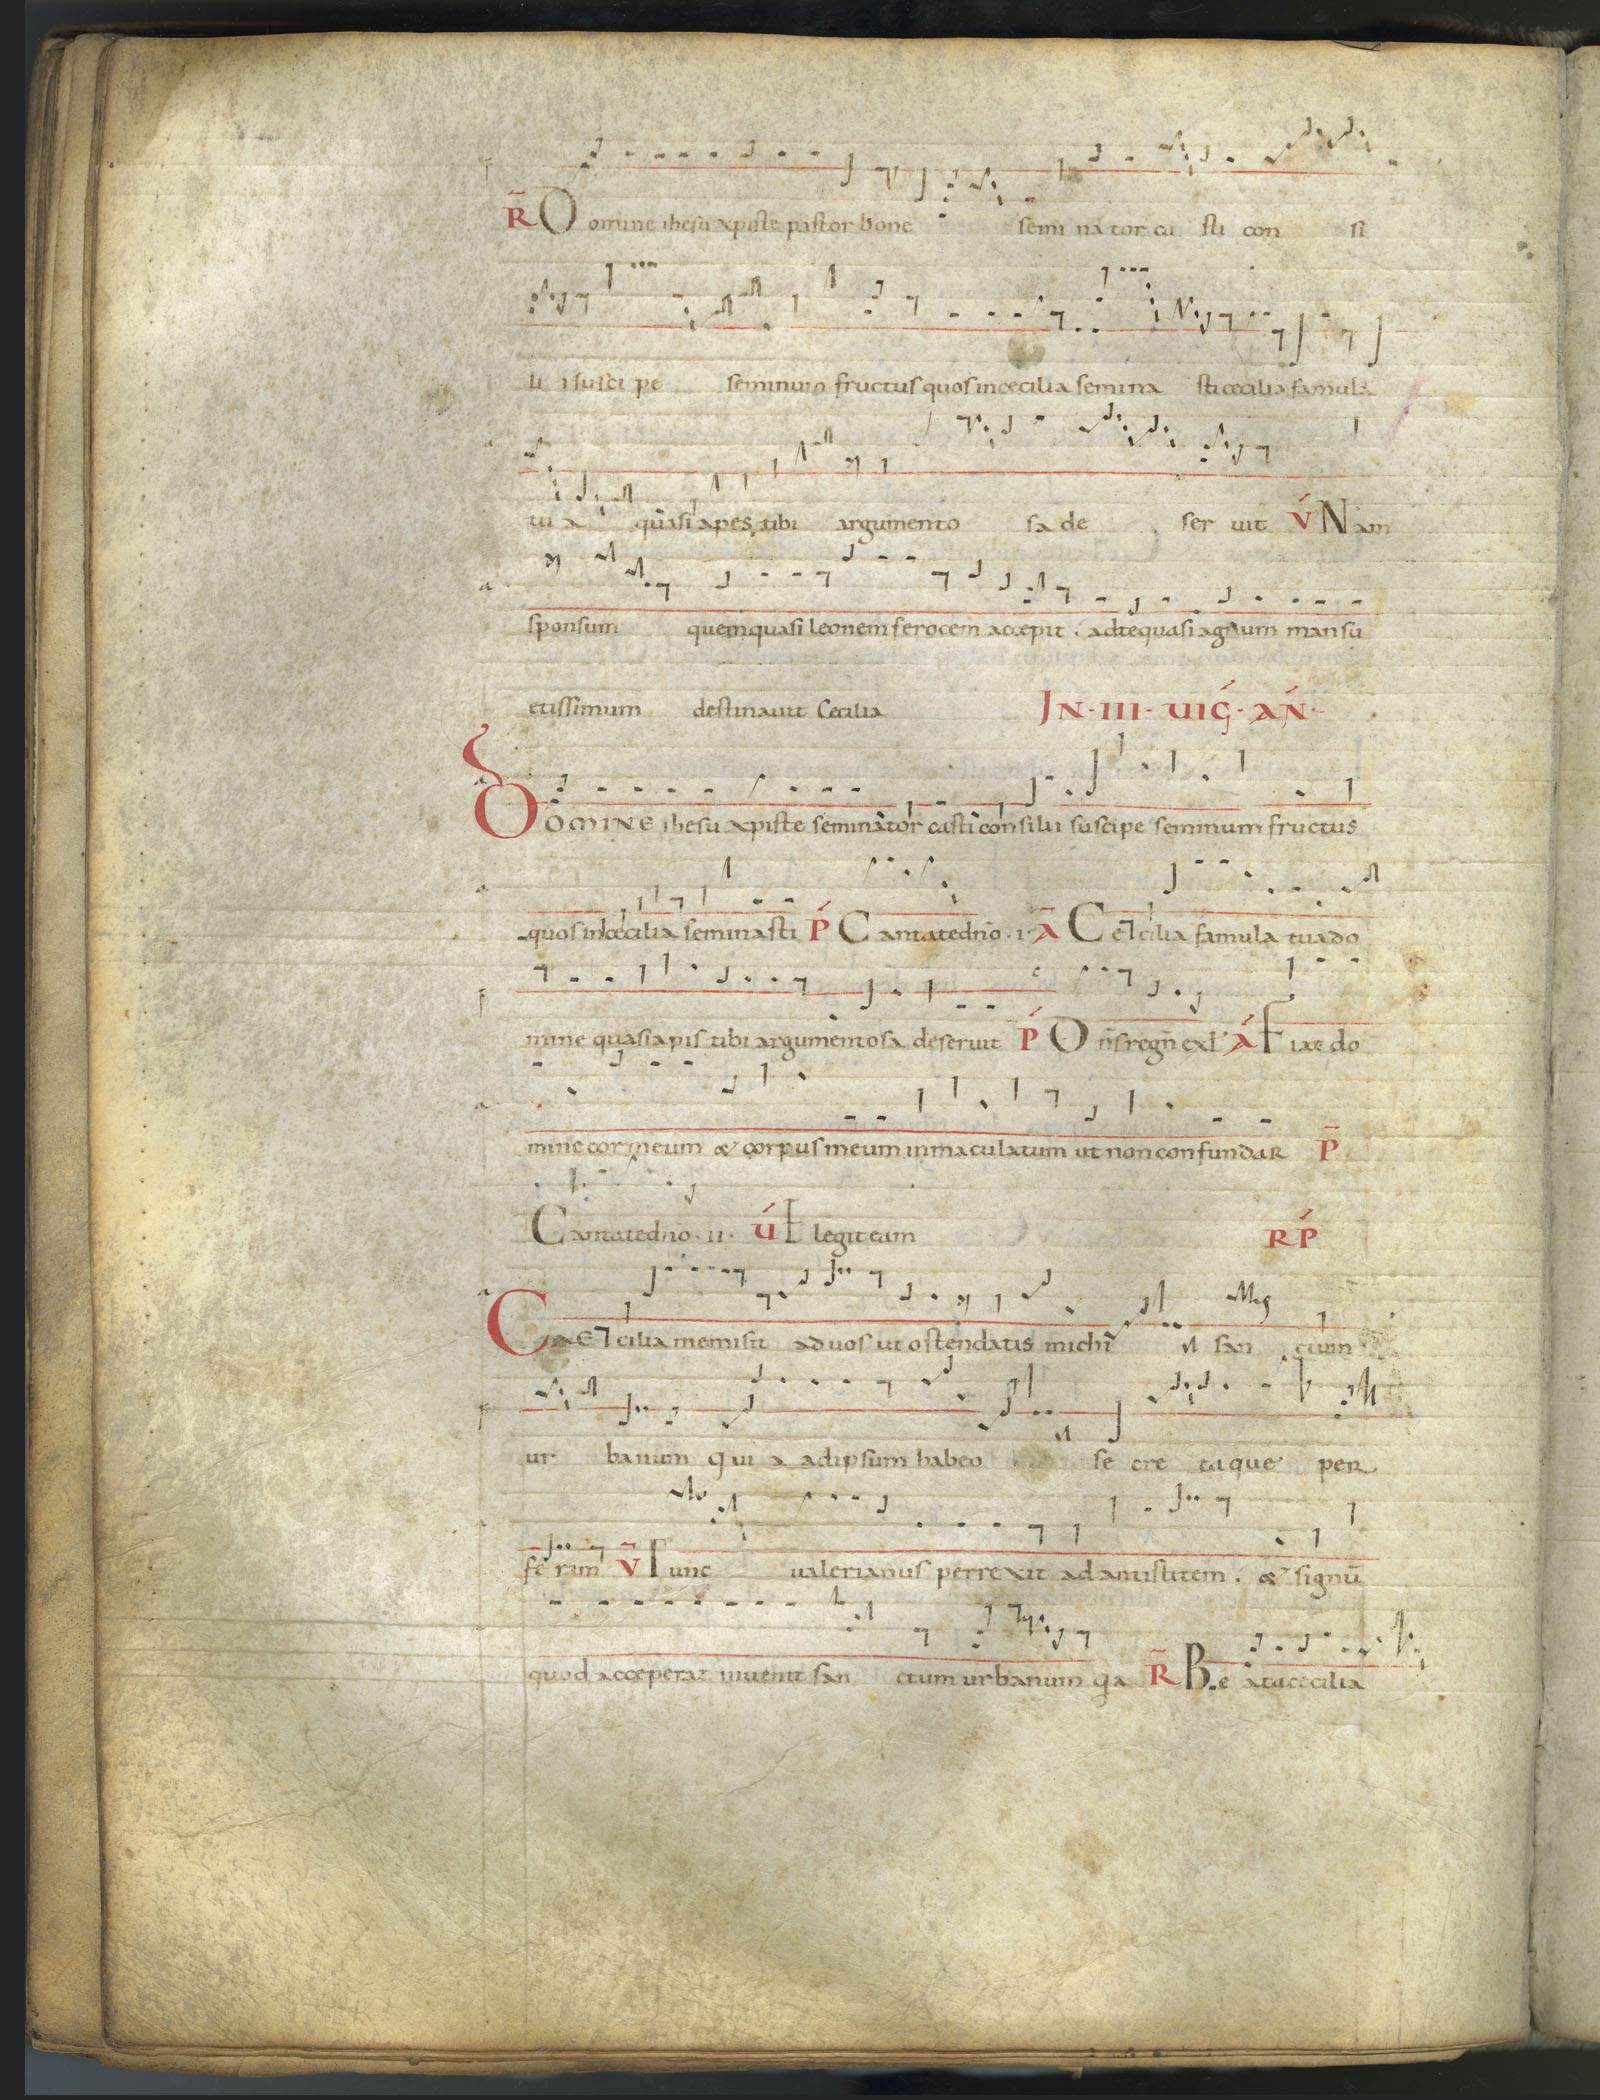 R̄ Domine ihesu xp̅iste pastor bone semi na tor ca sti con si
li i susci pe seminum fructus quos in cecilia semina sti cecilia famula
tu a quasi apes tibi argumento sa de ser uit V́ Nam
sponsum quem quasi leonem ferocem accepit . ad te quasi agnum mansu
etissimum destinauit Cecilia IN · III · UIǴ · AŃ ·
DOMINE ihesu xpiste seminator casti consilii suscipe seminum fructus
quos in cecilia seminasti Ṕ Cantate dn̄o · i · Ā Cecilia famula tua do
mine quasi apis tibi argumentosa deseruit Ṕ Dn̄s regn̄ exl' Á Fiat do
mine cor meum & corpus meum inmaculatum ut non confundar P̄
Cantate dn̄o · ii · Ú Elegit eam RṔ
CAEcilia me misit ad uos ut ostendatis michi san ctum
ur banum qui a ad ipsum habeo se cre ta que per
fe ram V̄ Tunc ualerianus perrexit ad antistitem . & signū
quod acceperat inuenit san ctum urbanum q̄a R̄ Be ata cecilia